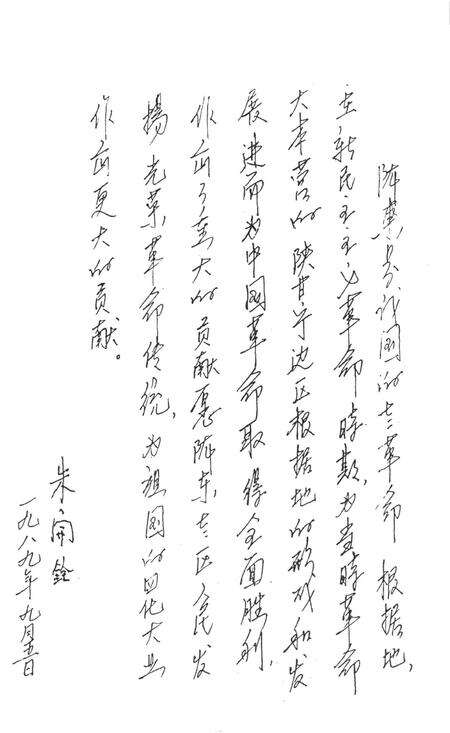 陇東是我國的老革命 根据地，
在新民主主义革命時期，为当時革命
大本营的陕甘宁边区根据地的形成和发
展进而为中国革命取得全面胜利，
作出了重大的贡献愿陇东老区人民发
揚光荣革命传统，为祖国的四化大业
作出更大的贡献。
朱開銓
一九八九年九月五日